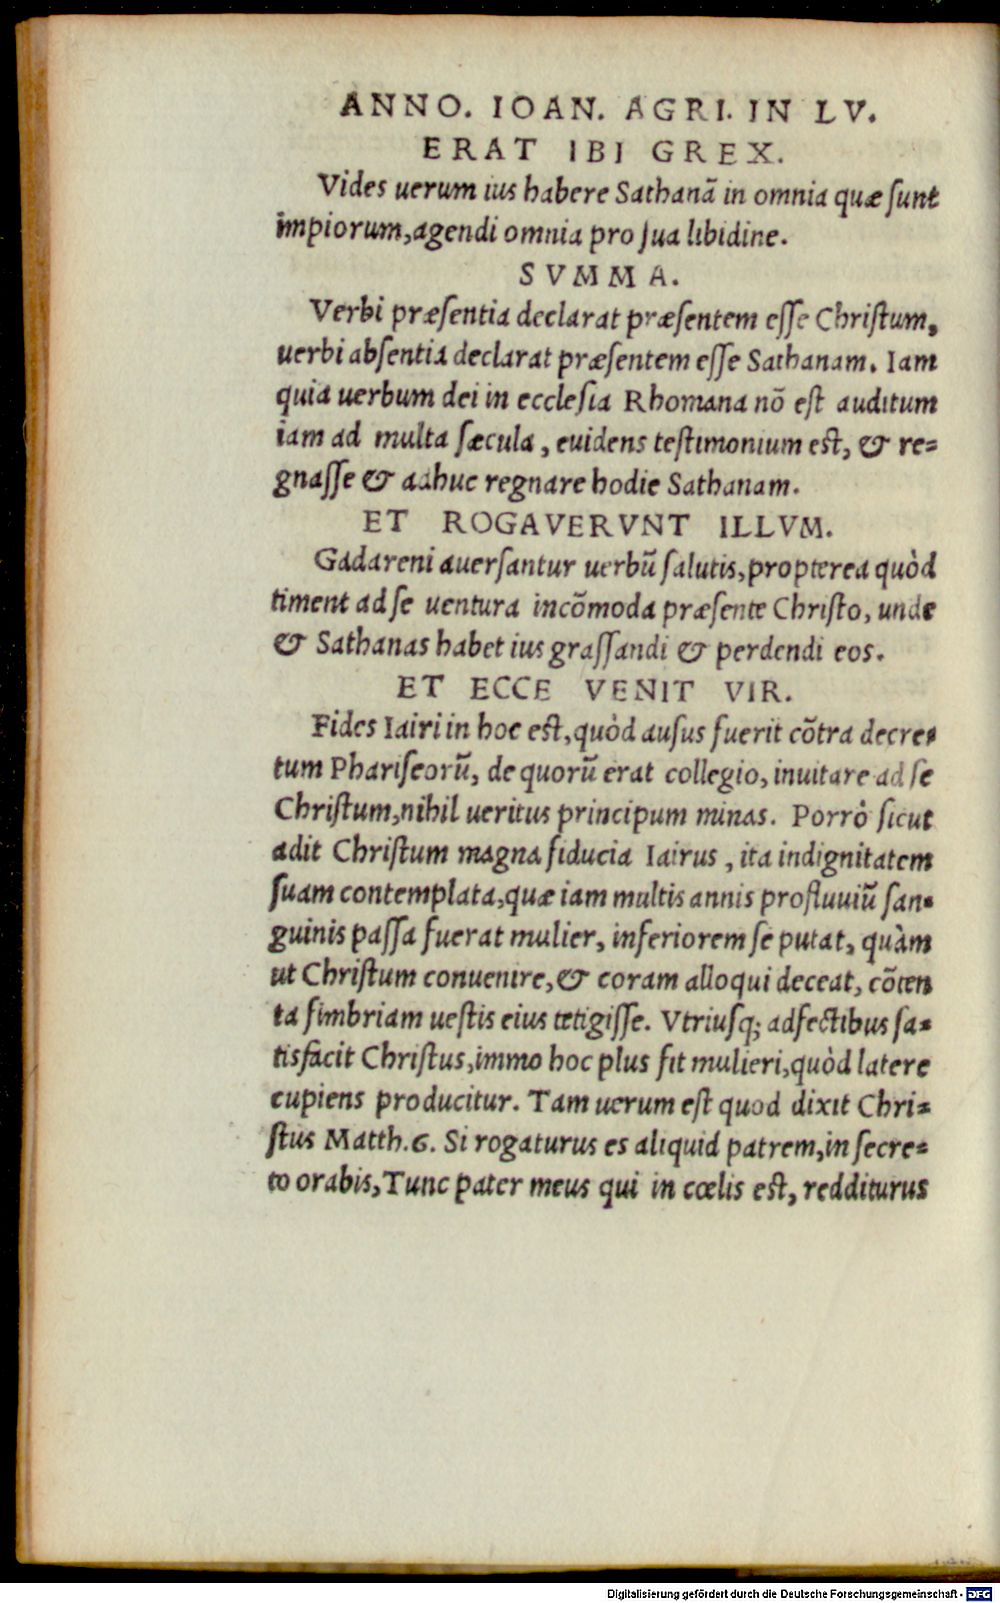 ANNO. IOAN. AGRI. IN LV.
ERAT IBI GREX.
Vides uerum ius habere Sathanã in omnia quæ sunt
impiorum, agendi omnia pro sua libidine.
SVMMA.
Verbi præsentia declarat præsentem esse Christum,
uerbi absentia declarat præsentem esse Sathanam. Iam
quia uerbum dei in ecclesia Rhomana nõ est auditum
iam ad multa sæcula, euidens testimonium est, & re=
gnasse & adhuc regnare hodie Sathanam.
ET ROGAVERVNT ILLVM.
Gadareni auersantur uerbũ salutis, propterea quòd
timent ad se uentura incõmoda præsente Christo, unde
& Sathanas habet ius grassandi & perdendi eos.
ET ECCE VENIT VIR.
Fides Iairi in hoc est, quòd ausus fuerit cõtra decre=
tum Phariseorũ, de quorũ erat collegio, inuitare ad se
Christum, nihil ueritus principum minas. Porrò sicut
adit Christum magna fiducia Iairus, ita indignitatem
suam contemplata, quæ iam multis annis profluuiũ san=
guinis passa fuerat mulier, inferiorem se putat, quàm
ut Christum conuenire, & coram alloqui deceat, cõten
ta fimbriam uestis eius tetigisse. Vtriusq; adfectibus sa=
tisfacit Christus, immo hoc plus fit mulieri, quòd latere
cupiens producitur. Tam uerum est quod dixit Chri=
stus Matth. 6. Si rogaturus es aliquid patrem, in secre=
to orabis, Tunc pater meus qui in cœlis est, redditurus
Digitalisierung gefördert durch die Deutsche Forschungsgemeinschaft - DFG